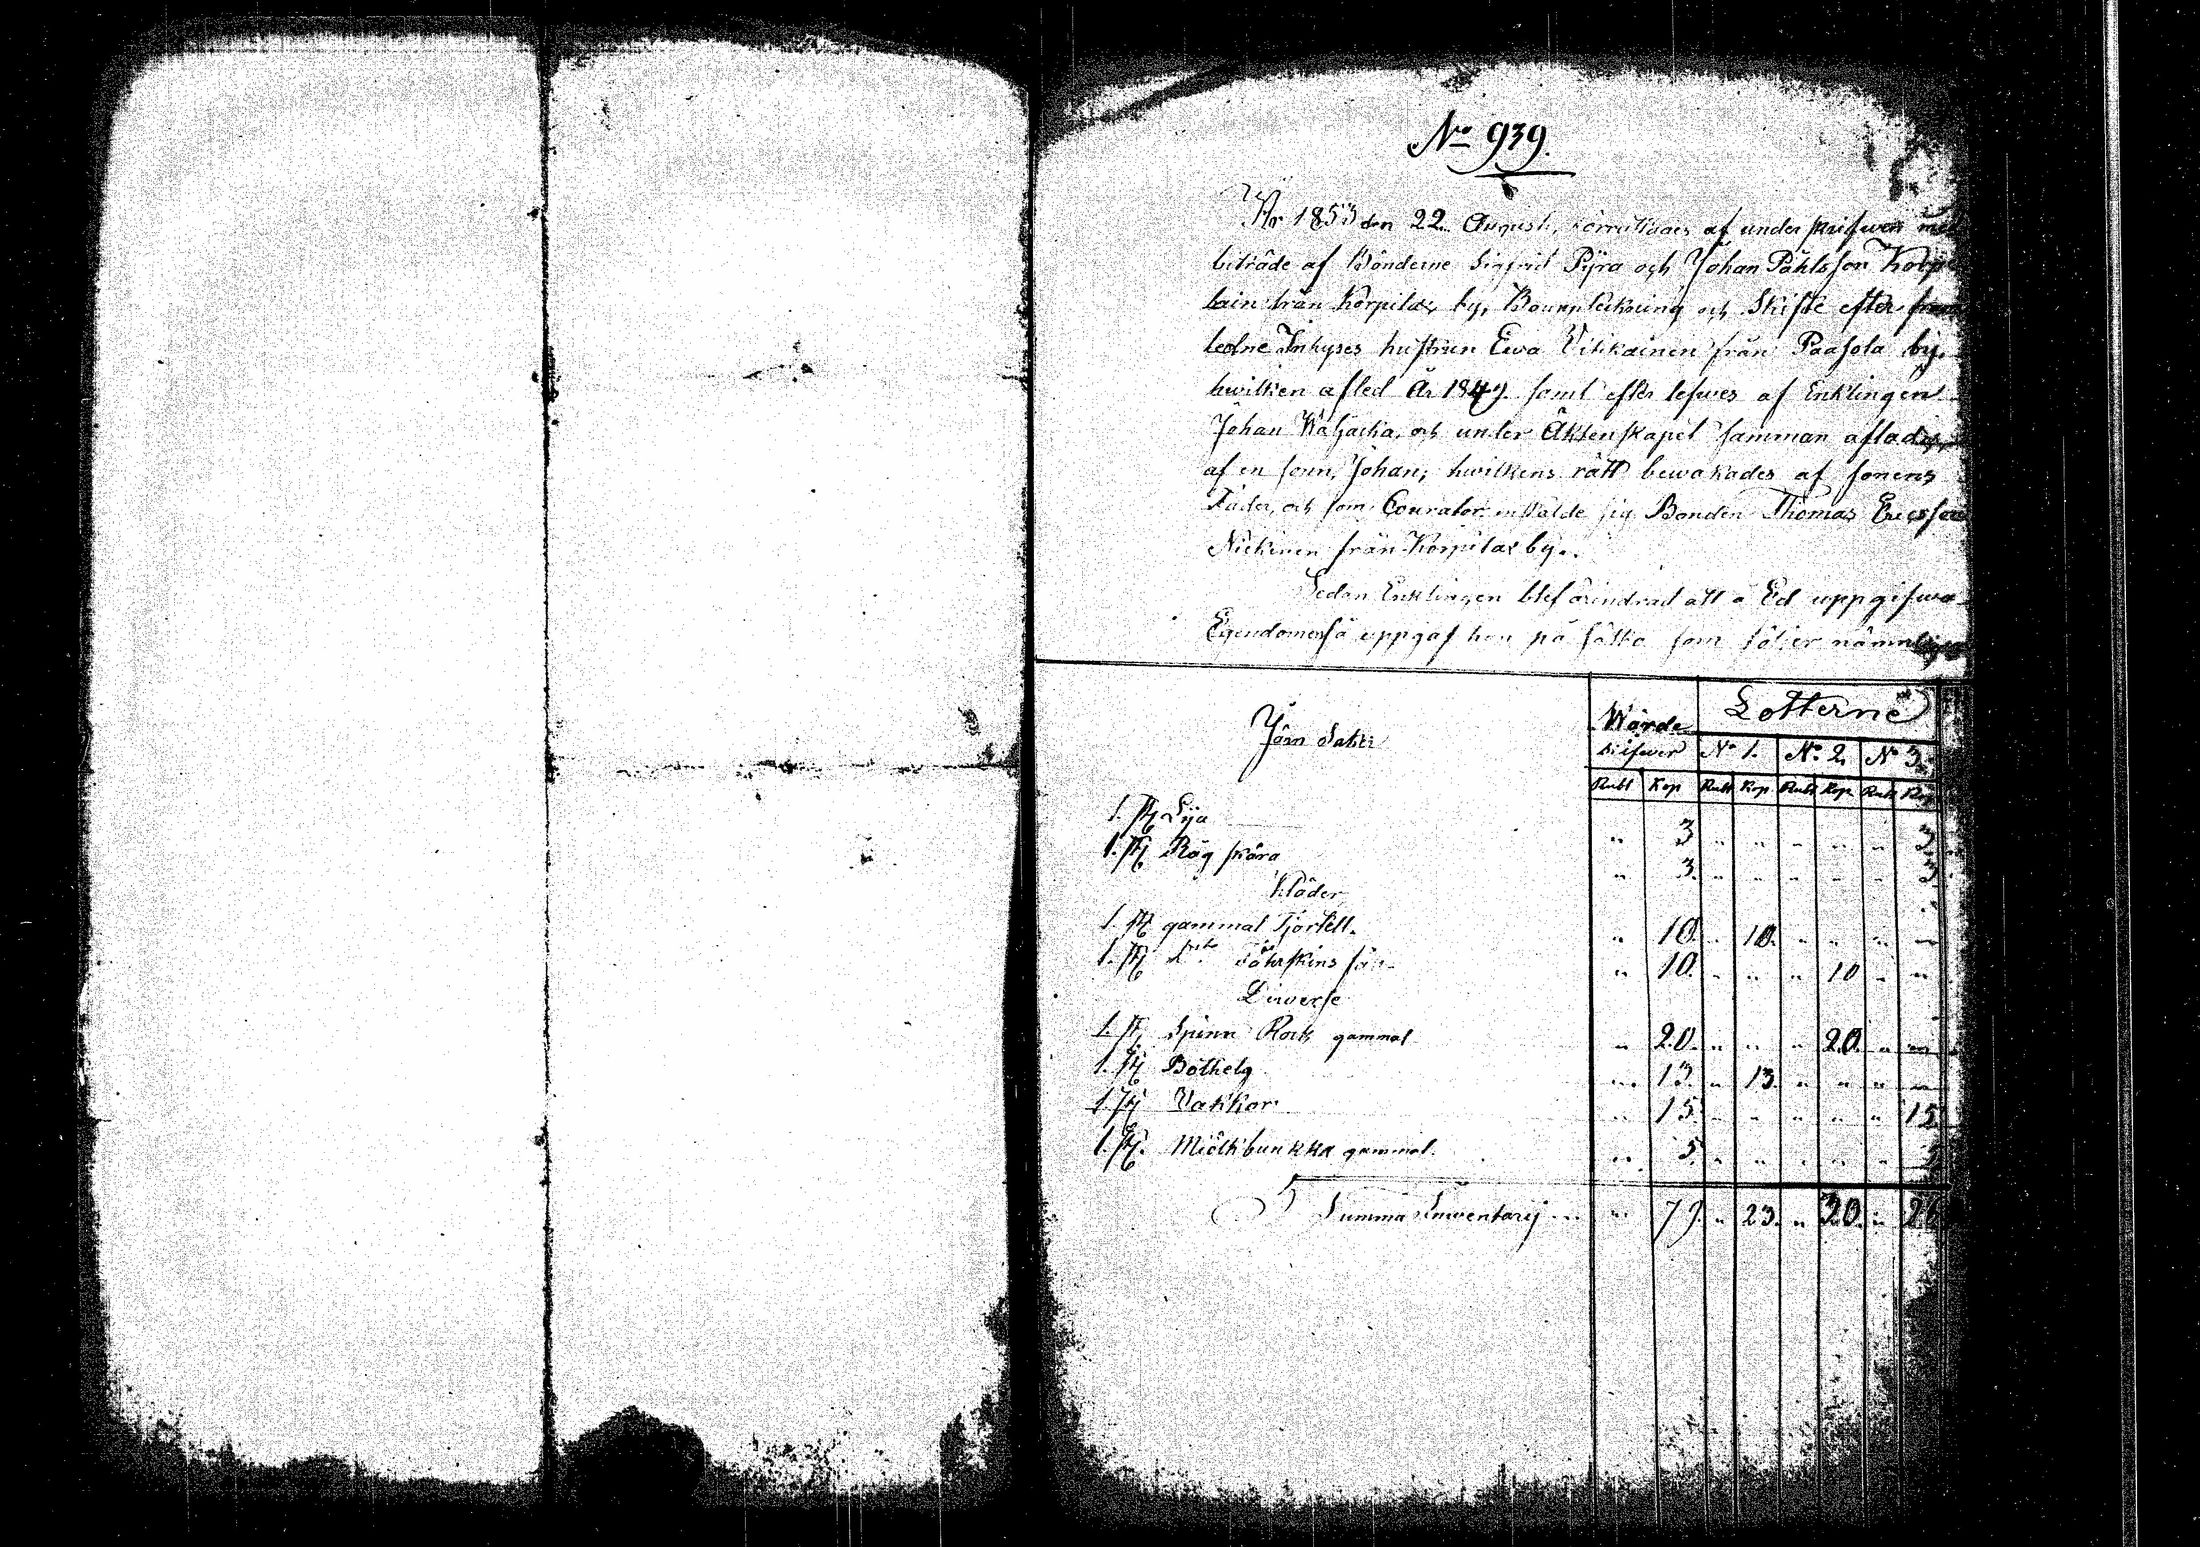 No 939.
År 1853 den 22 August, förrättades af underskrifwen med
biträde af Bönderne Sigfrid Pyra och Johan Påhlsson Korpe
lain från Korpilax by, Bouppteckning och Skifte efter
ledne Inhyses hustrun Ewa Vitikainen från Paasola by,
hwilken afled År 1849. samt efterlefwes af Enklingen
Johan och under Äktenskapet samman aflades
af en sonn, Johan; hwilkens rätt bewakades af sonens
Fader, och som Courator instälde sig Bonden Thomas Ericsson
Niekinen från Korpilax by.
Sedan Enklingen blef årindrad att å Ed uppgifwa
Egendomen så uppgaf han på sätta som följer nämnligen
Jörn Saker
Wärde Lotterne
silfwer No 1. No 2. No 3.
Rubl Kop Rubl Kop Rubl Kop Rubl Kop
1. st Lya " 3 " " " " " 3
1. st Råg skära " 3. " " " " " 3
Kläder
1. st gammal Tjortell. " 10. " 10. " " " "
1. st dito Fåhrskins " 10. " " " 10 " "
Diwerse
1. st Spinn Rock gammal " 20. " " " 20. " "
1. st Böthelg " 13. " 13. " " " "
1. st Vakkor " 15. " " " " " 15
1. st. Miölkbunkka gammal. " 5. " " " " " 5
Summa Inwentarij " 79. " 23. " 30. " 26